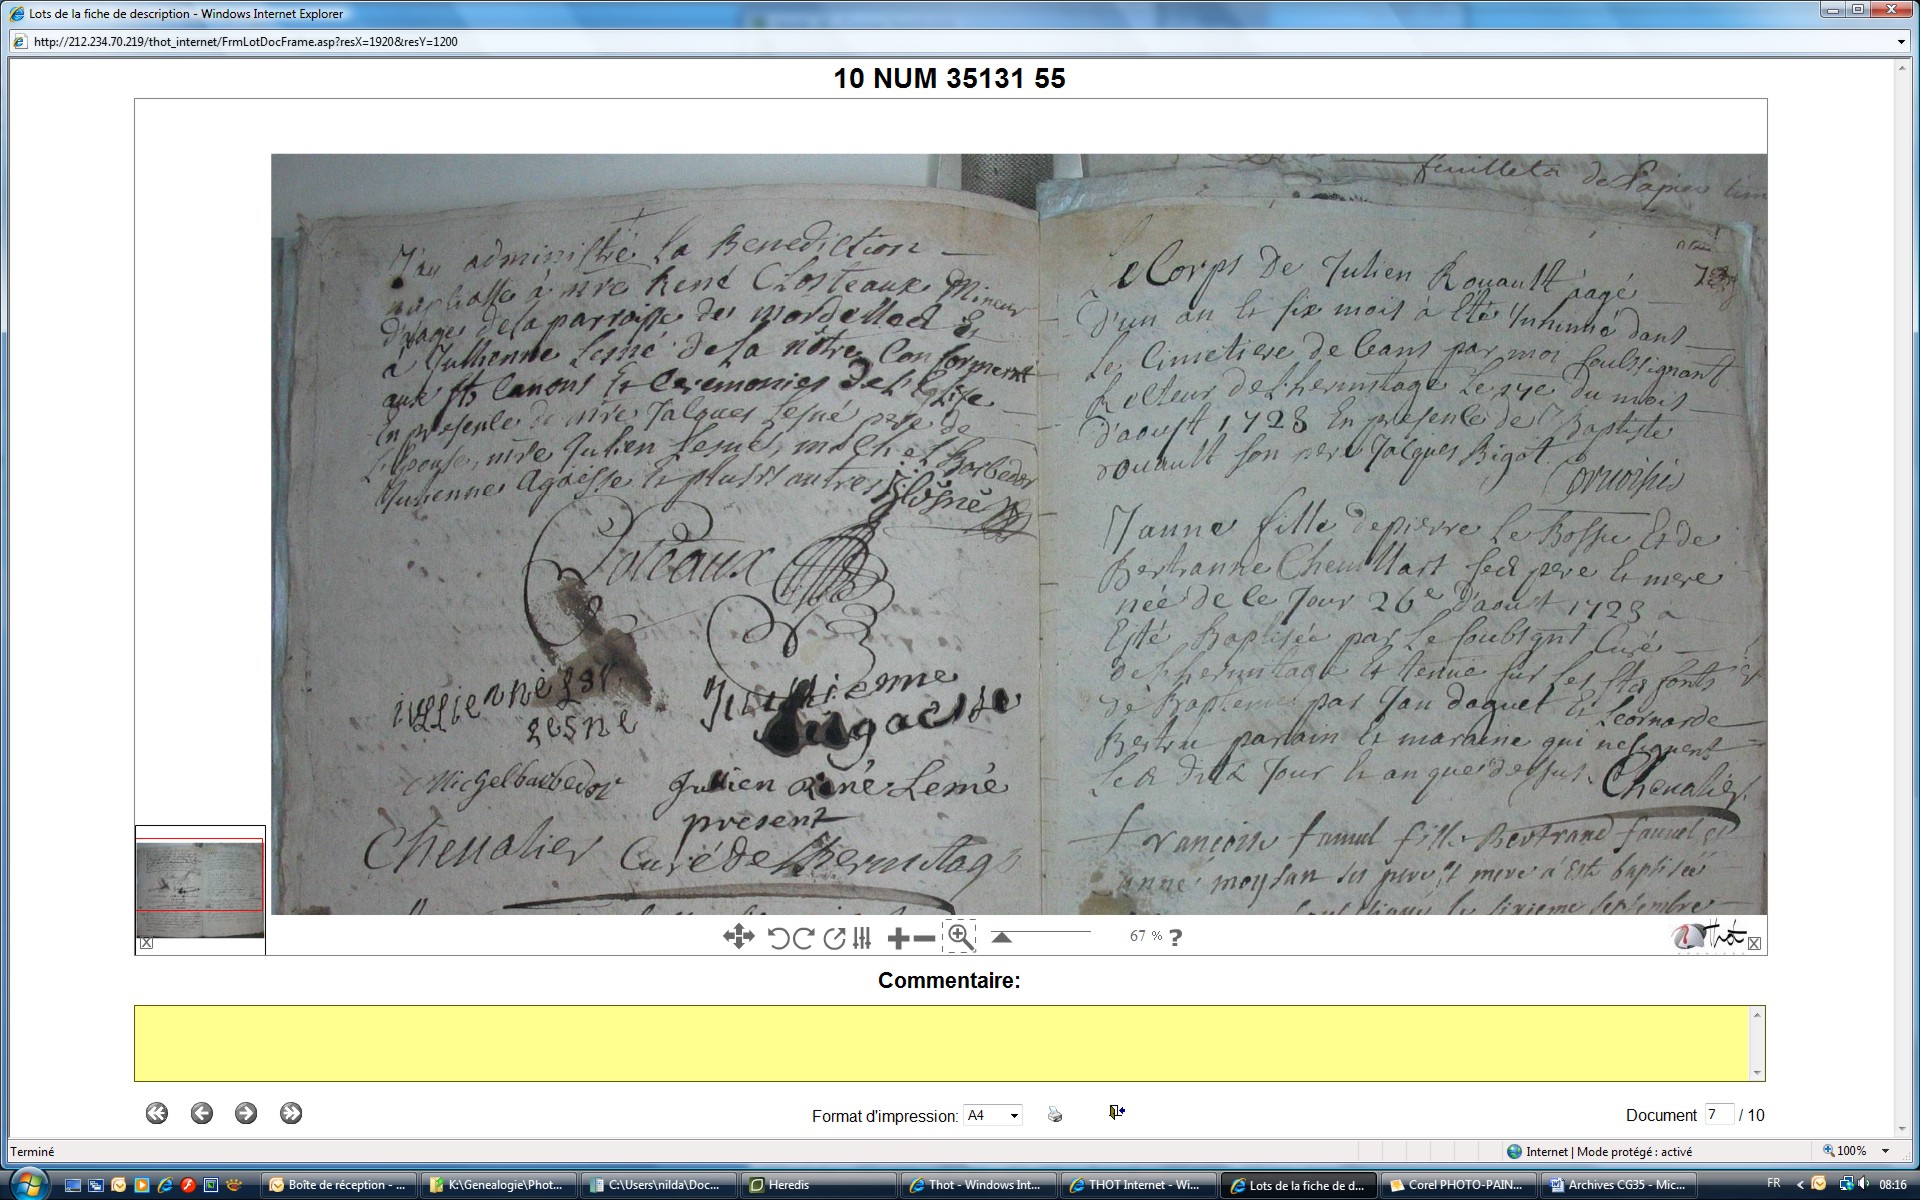 Lots de la fiche de description - Windows Internet Explorer
http://212.234.70.219/thot_internet/FrmLotDocFrame.asp?resX=1920&resY=1200
10 NUM 35131 55
feuilleta de Papier tim
J'ay administré la Benediction
nuptialle à mre René Closteaux Mineur
d'aage de la parroisse de mordelles Et
à Jullienne Lesné de la nôtre Conformement
aux sts Canons Et Ceremonies de L'Eglise
En presence de mre Jacques Lesné pere de
L'Epouse, mre Julien Lesné, michel Barbedor
Jullienne Agaësse Et plusrs autres
Closteaux
iullienne
Lesne
Jullienne
Agaesse
Michel barbedor
Julien René Lemé
present
Chevalier Curé de Lhermitage
Le Corps De Julien Rouault agé
D'un an Et six mois à Eté Inhumé dans
Le Cimetiere de Ceans par moi soussignant
Recteur de L'hermitage Le du mois
d'aoust 1723 En presence de J Baptiste
rouault son pere Jacques Bigot.
Janne fille de pierre Le Bossu Et de
Bertranne Chevillart ses pere Et mere
née de ce Jour 26e d'aoust 1723 a
Esté Baptisée par Le soubsignt Curé
de Lhermitage Et tenue sur Les sts fonts
de Bapteme par Jan daguet Et Leonarde
Bertru parain Et maraine qui ne signent
Les dits Jour Et an que dessus. Chevalier
Françoise famul fille Bertrand famul et
anne moysan ses pere et mere à Esté baptisée
le sixieme septembre
67 % ?
Thot
Commentaire:
Format d'impression: A4
Document 7 / 10
Terminé
Internet | Mode protégé : activé
100%
Boîte de réception - ...
K:\Genealogie\Phot...
C:\Users\nilda\Doc...
Heredis
Thot - Windows Int...
THOT Internet - Wi...
Lots de la fiche de d...
Corel PHOTO-PAIN...
Archives CG35 - Mic...
FR
08:16